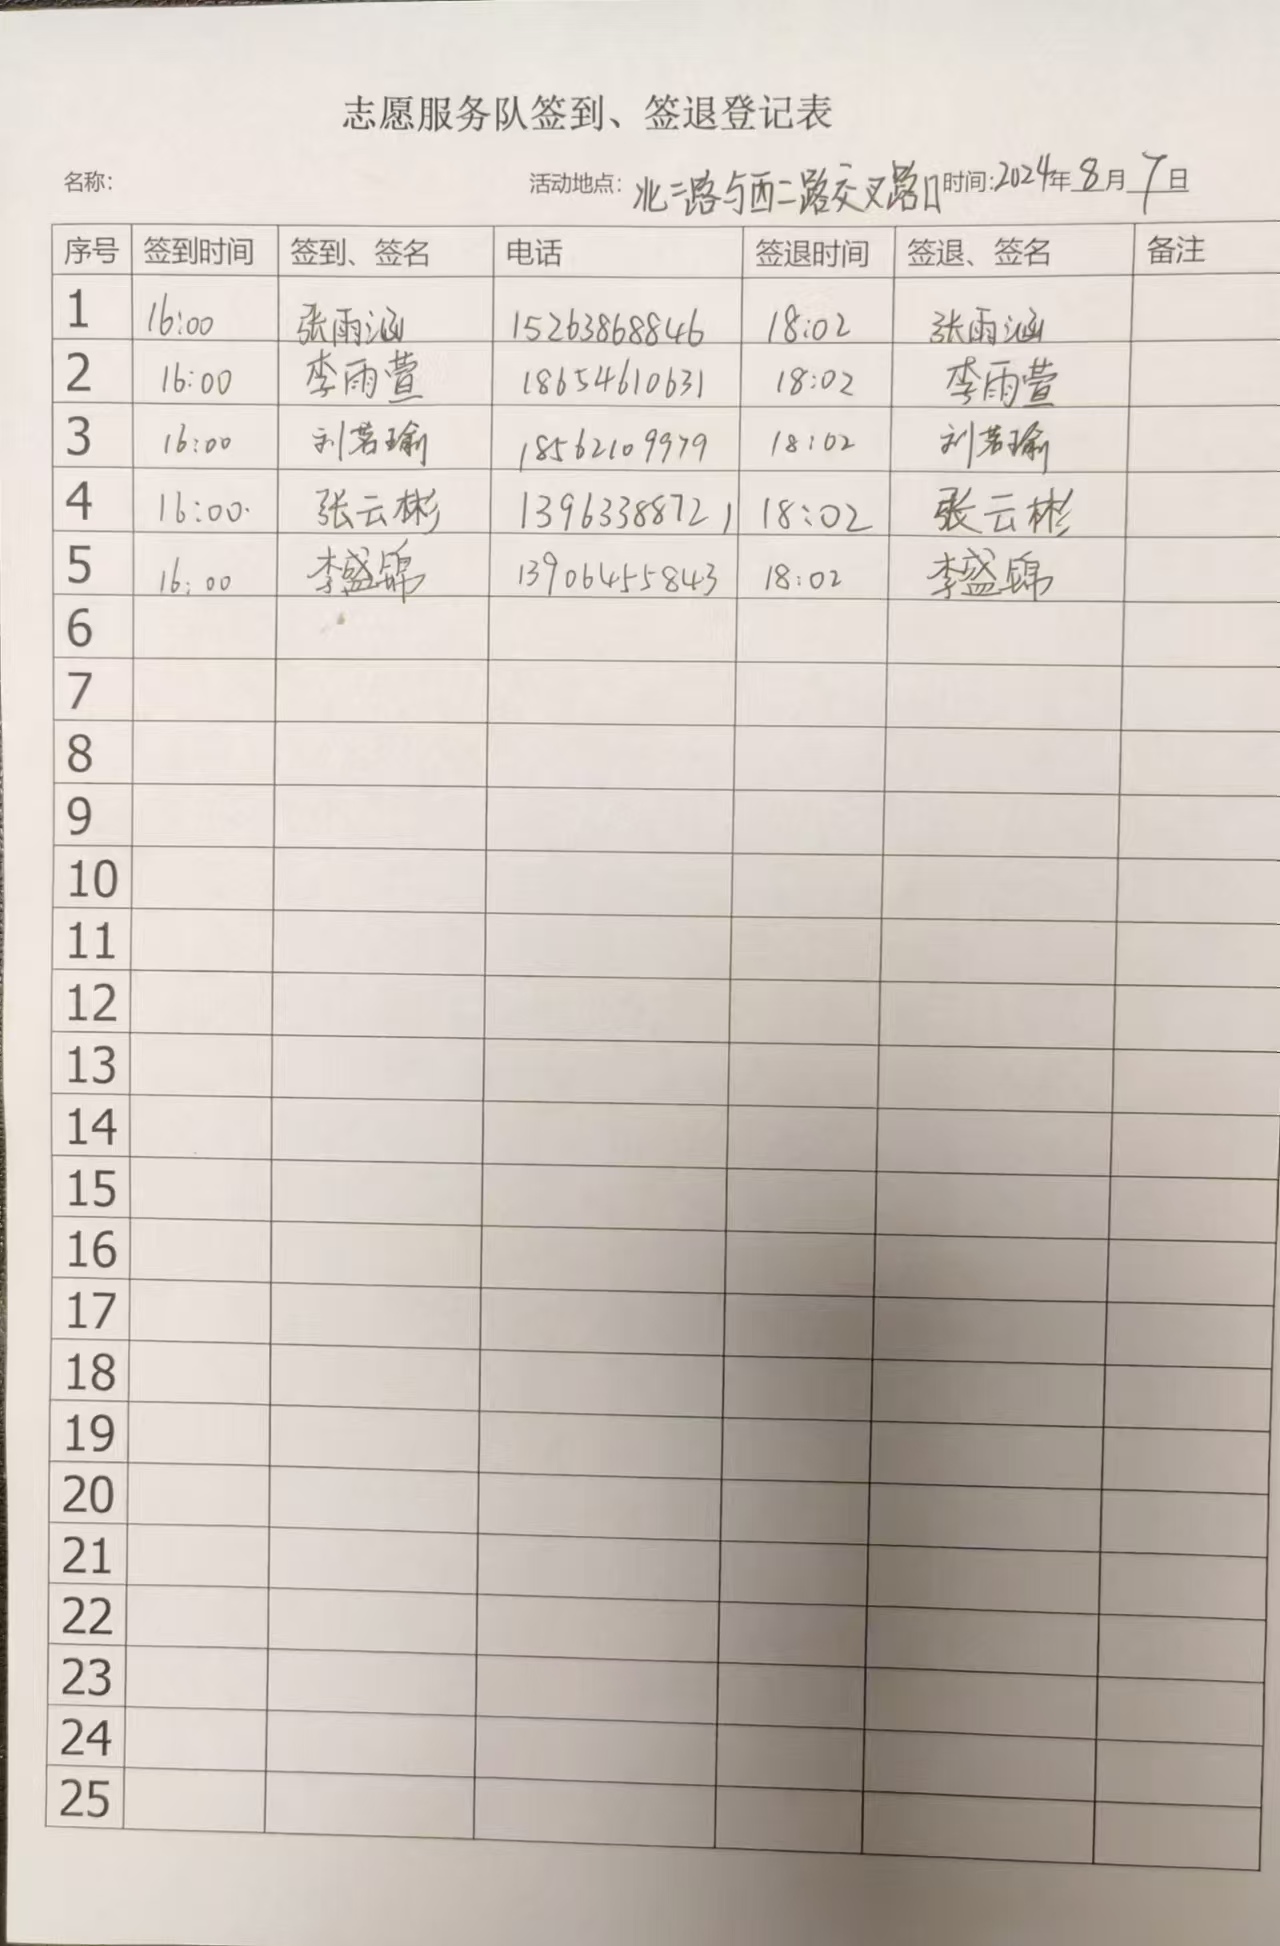 志愿服务队签到、签退登记表
名称: 活动地点: 北二路与西二路交叉路口 时间:2024年 8月 7日
序号 签到时间 签到、签名 电话 签退时间 签退、签名 备注
1 16:00 张雨涵 15263868846 18:02 张雨涵
2 16:00 李雨萱 18654610631 18:02 李雨萱
3 16:00 刘若瑜 18562109979 18:02 刘若瑜
4 16:00 张云彬 13963388721 18:02 张云彬
5 16:00 李盛锦 13906455843 18:02 李盛锦
6
7
8
9
10
11
12
13
14
15
16
17
18
19
20
21
22
23
24
25